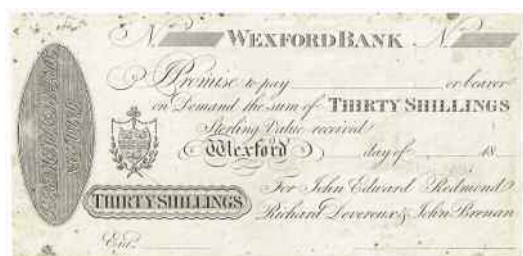 N. WEXFORD BANK N.
I Promise to pay or bearer
on Demand the sum of THIRTY SHILLINGS
Sterling Value received
Wexford day of 18
For John Edward Redmond
THIRTY SHILLINGS
Richard Devereux & John Brenan
Ent.